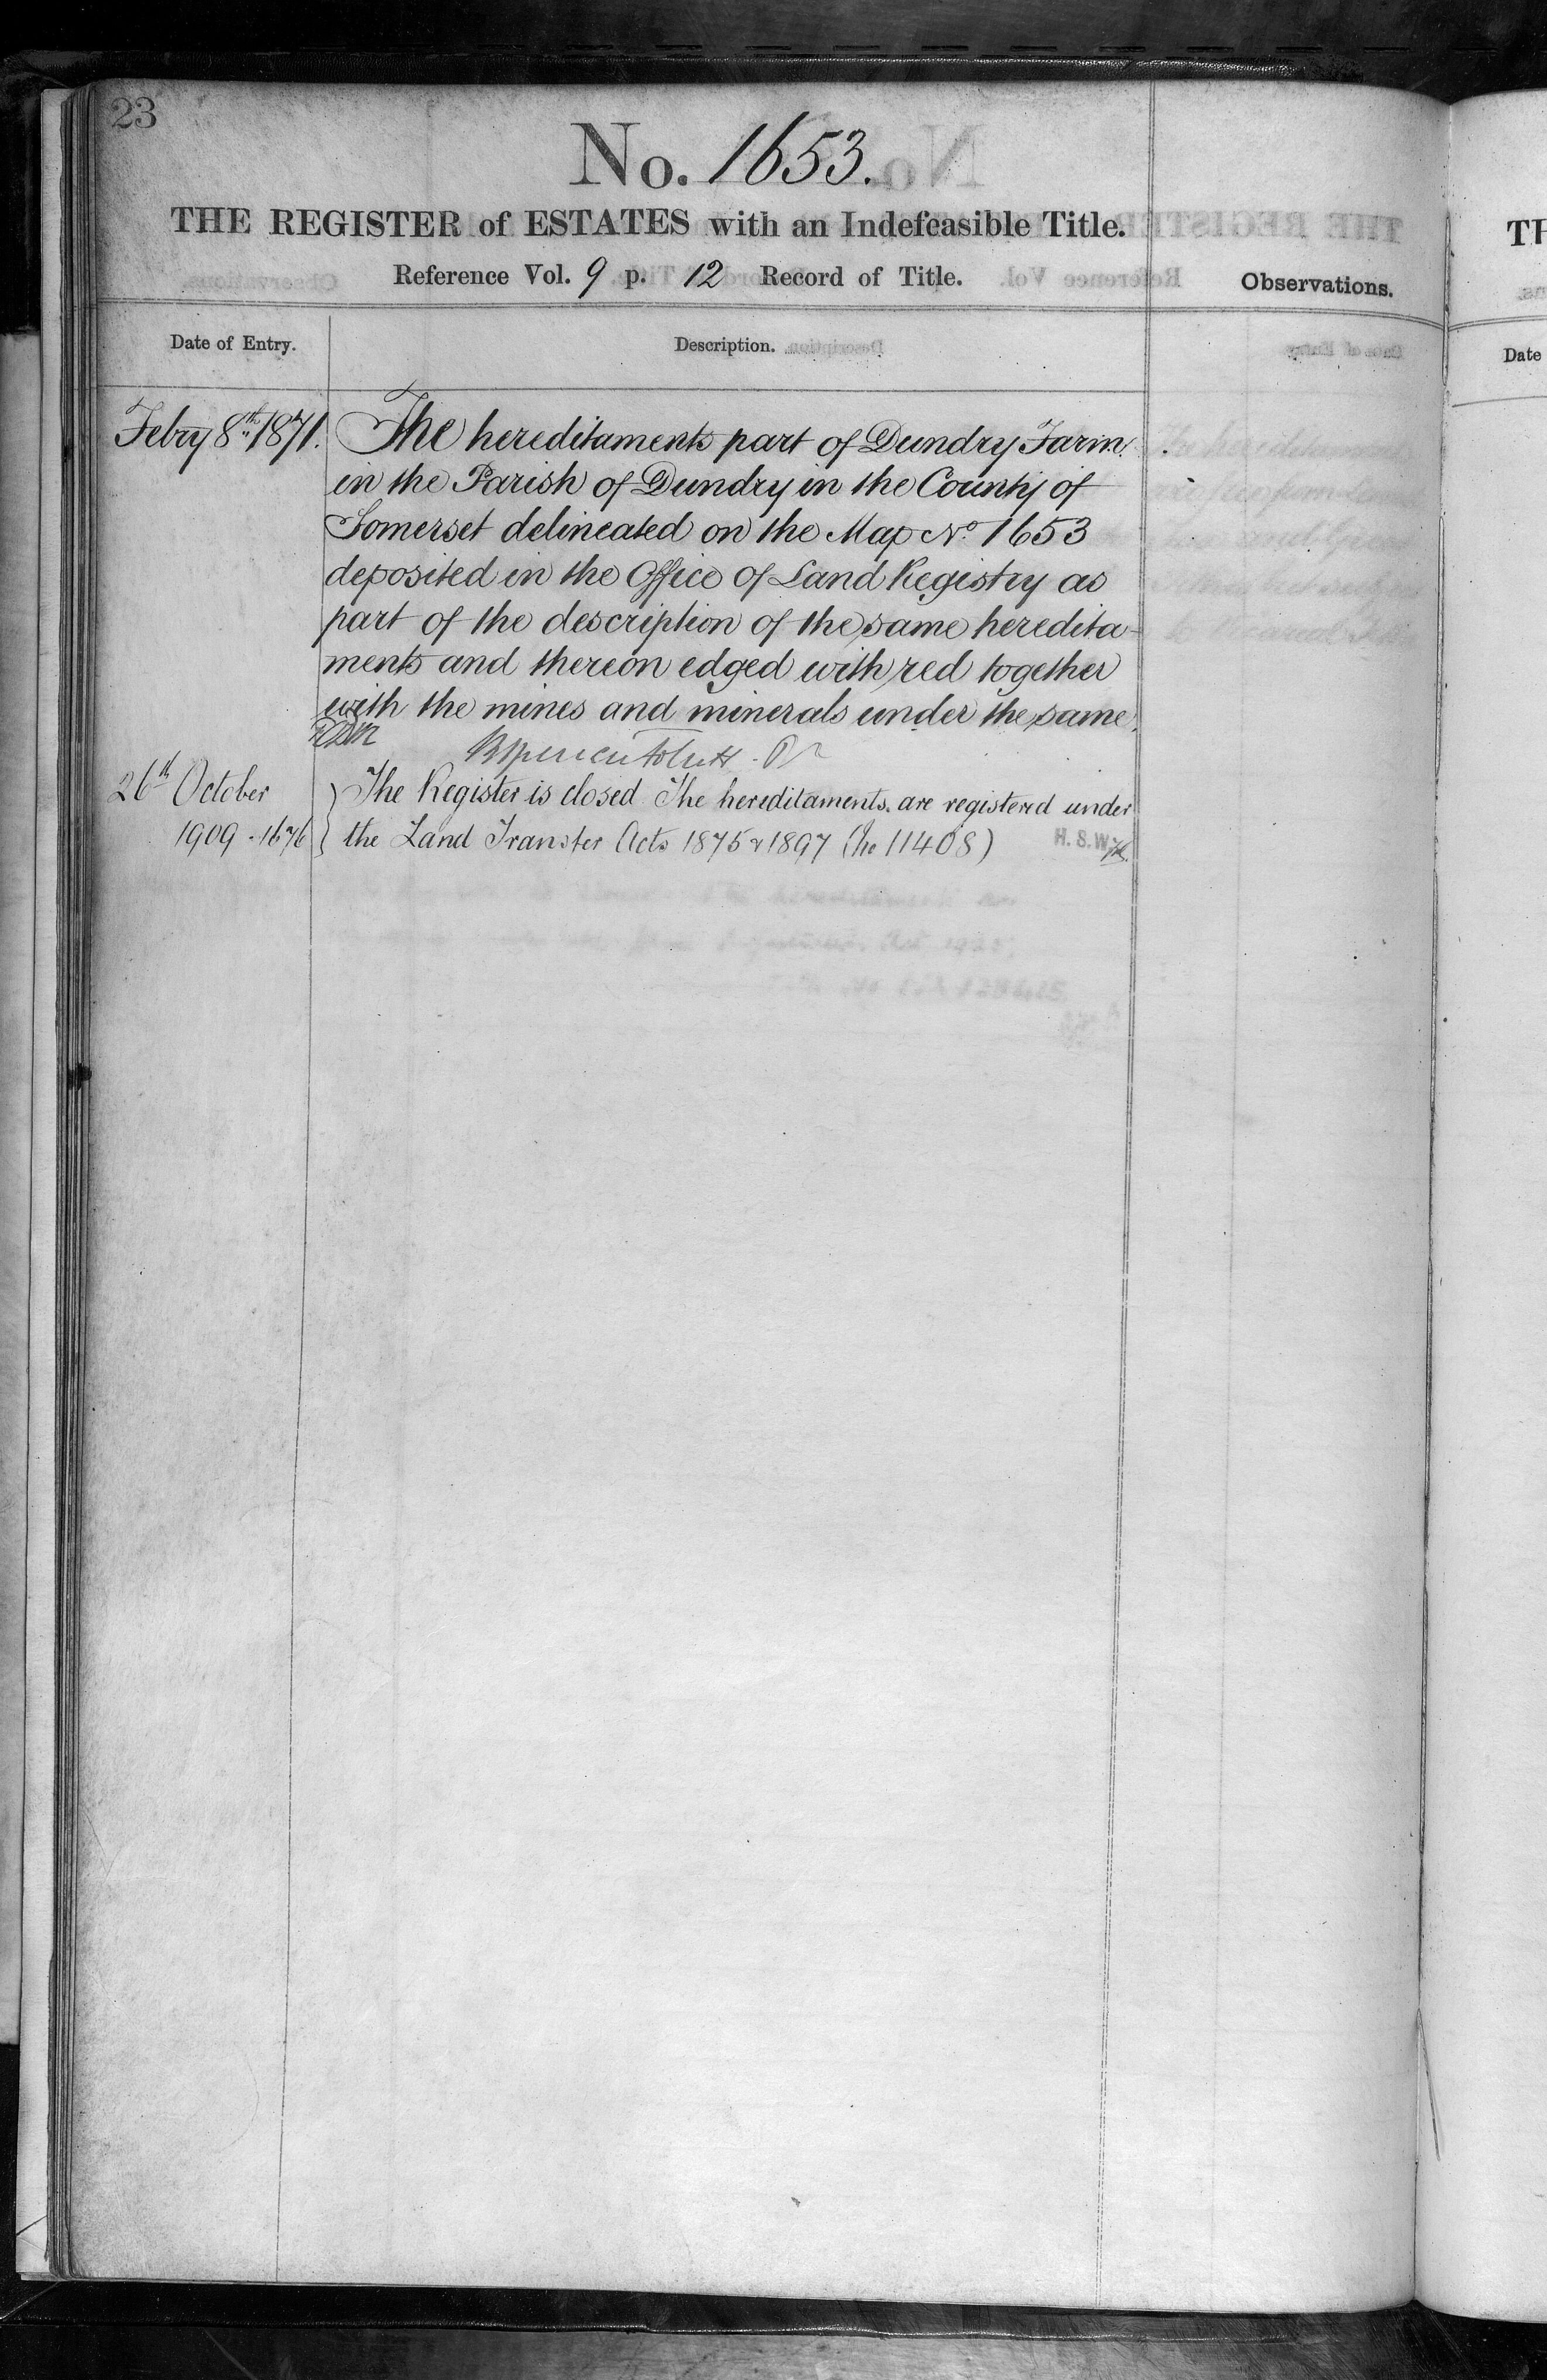 23
No. 1653.
THE REGISTER of ESTATES with an Indefeasible Title.
Reference Vol. 9 p. 12 Record of Title.
Observations.
Date of Entry.
Description.
Febry 8th 1871.
The hereditaments part of Dundry Farm
in the Parish of Dundry in the County of
Somerset delineated on the Map No. 1653
deposited in the Office of Land Registry as
part of the description of the same heredita-
ments and thereon edged with red together
with the mines and minerals under the same.
26th October
1909 . 1676
The Register is closed The hereditaments are registered under
the Land Transfer Acts 1875 & 1897 (No 11408)
H.S.W.
TH
Date